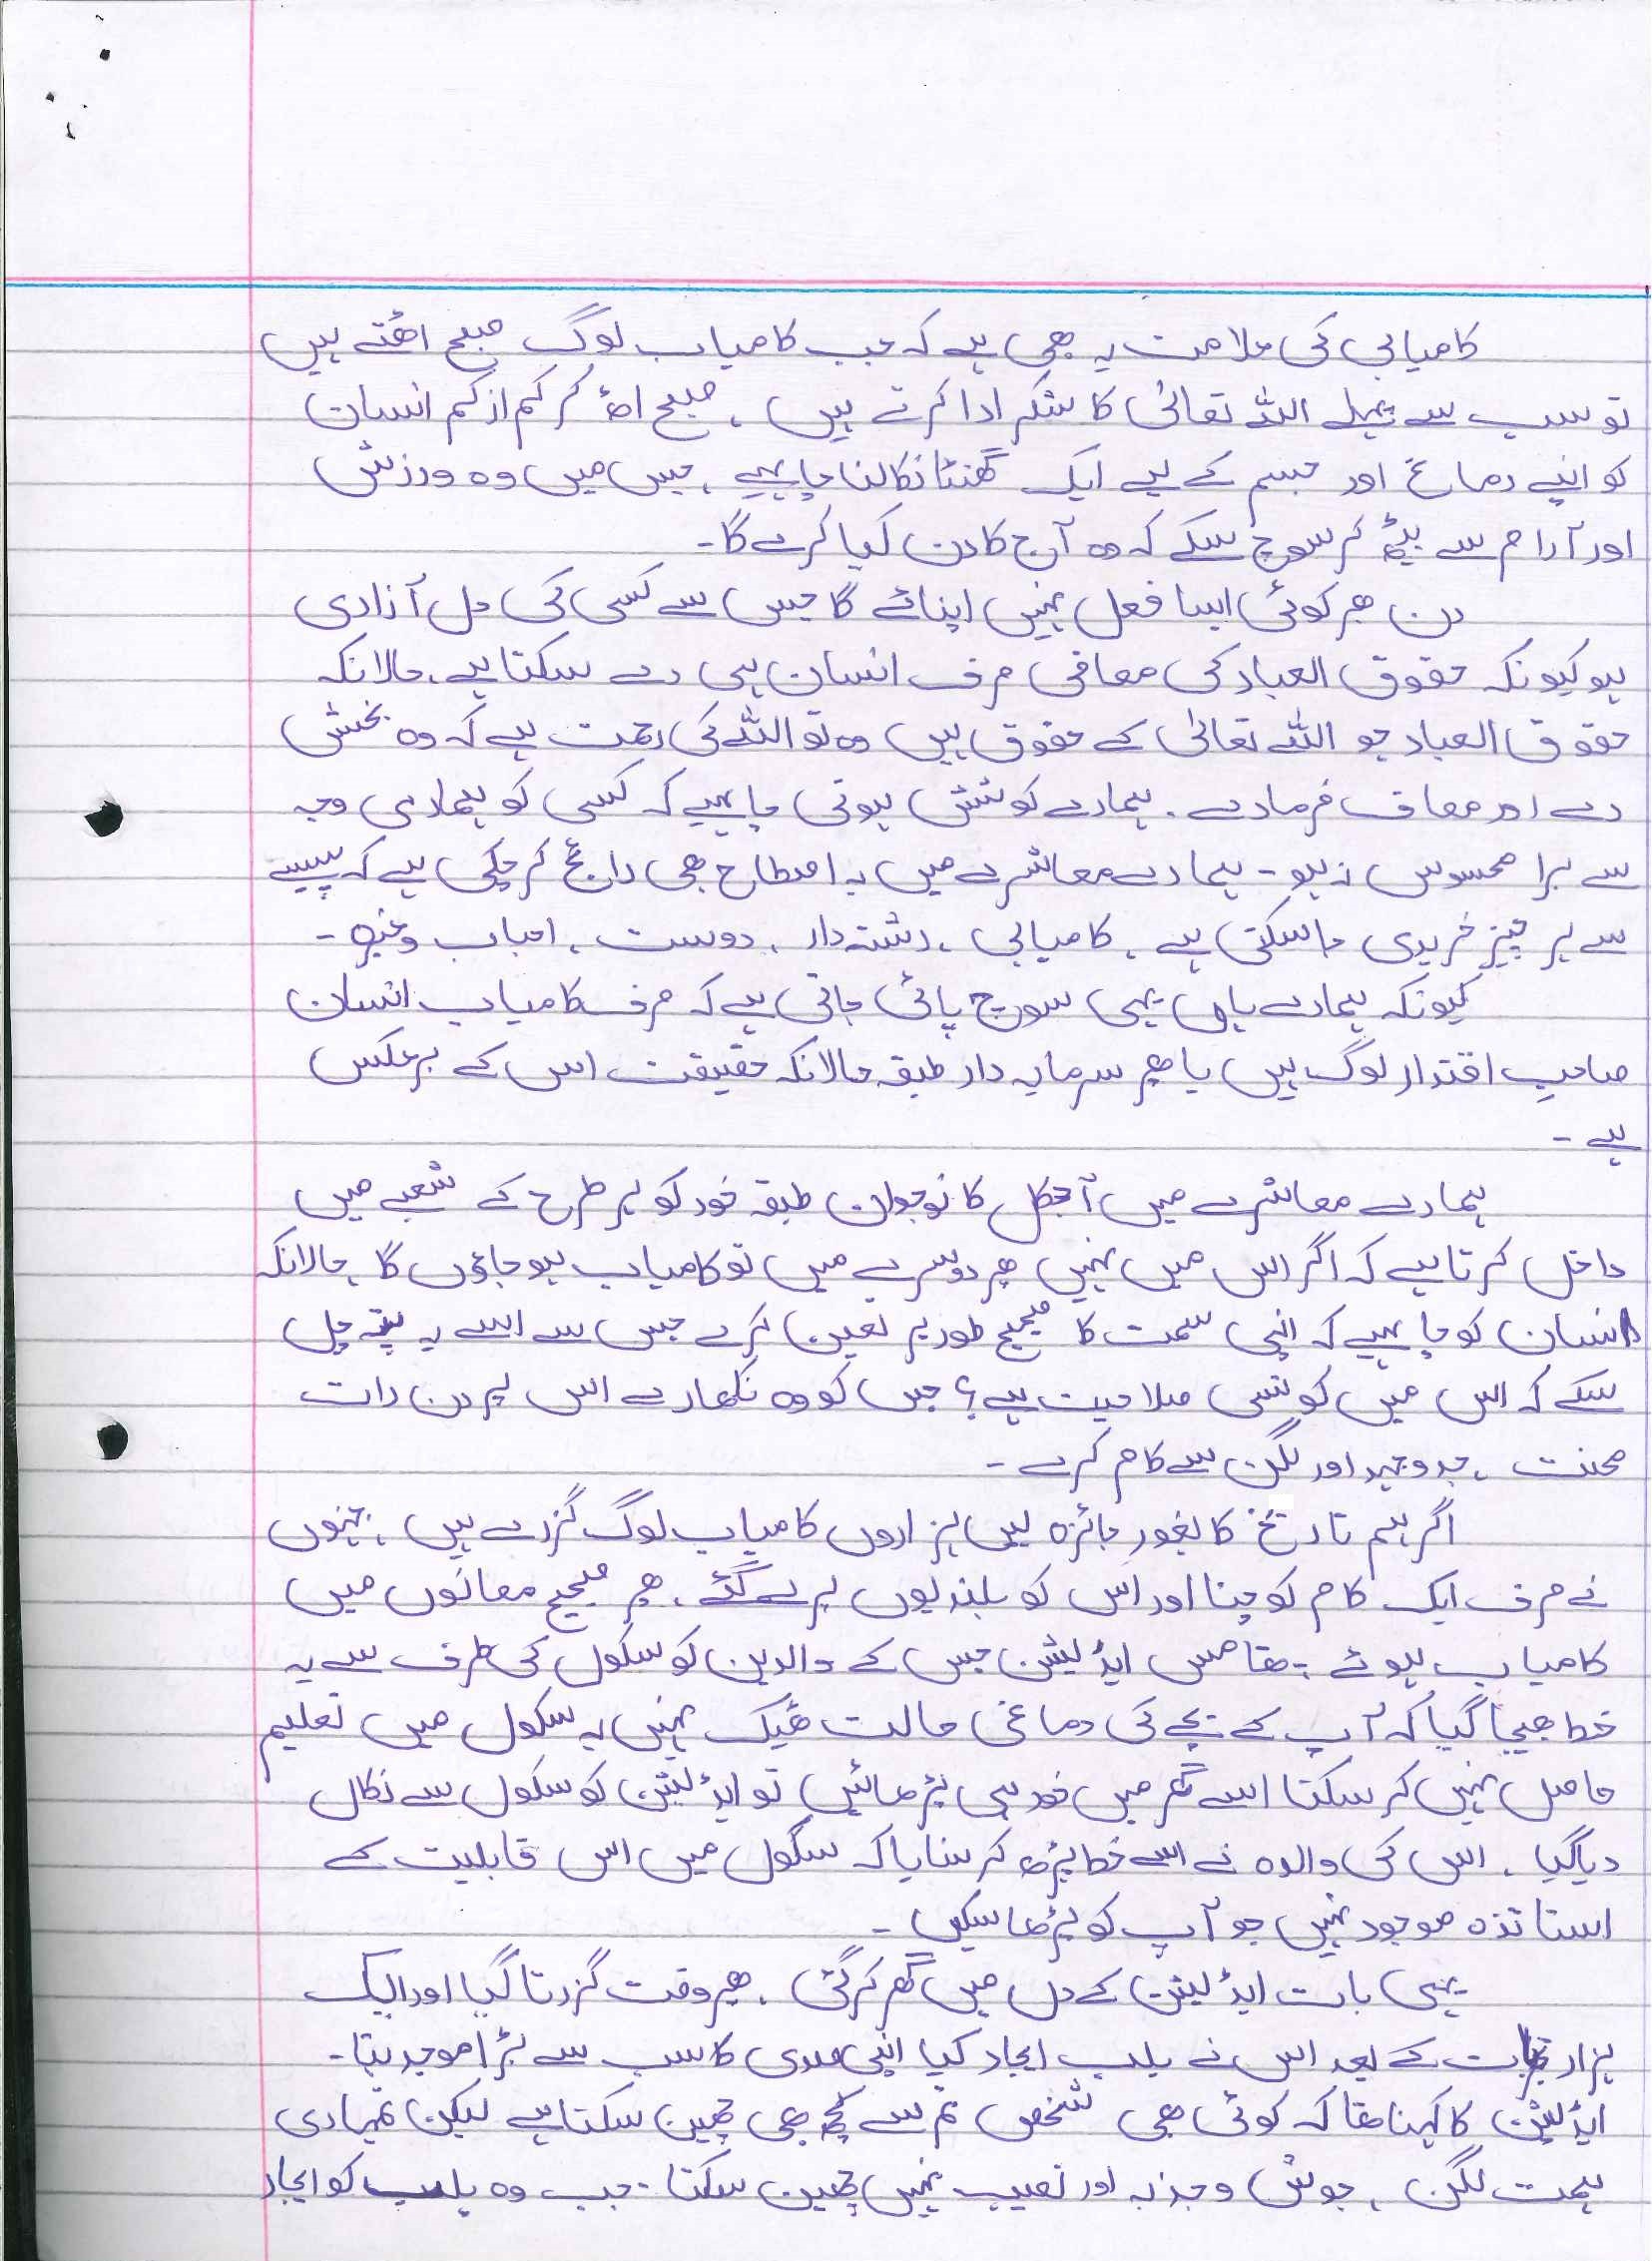 کامیابی کی علامت یہ بھی ہے کہ جب کامیاب لوگ صبح اٹھتے ہیں
تو سب سے پہلے اللہ تعالیٰ کا شکر ادا کرتے ہیں ، صبح اٹھ کر کم از کم انسان
کو اپنے دماغ اور جسم کے لیے ایک گھنٹا نکالنا چاہیے ، جس میں وہ ورزش
اور آرام سے بیٹھ کر سوچ سکے کہ وہ آج کا دن کیا کرے گا۔
دن بھر کوئی ایسا فعل نہیں اپنائے گا جس سے کسی کی دل آزادی
ہو کیونکہ حقوق العباد کی معافی صرف انسان ہی دے سکتا ہے ، حالانکہ
حقوق العباد جو اللہ تعالیٰ کے حقوق ہیں وہ تو اللہ کی رحمت ہے کہ وہ بخش
دے اور معاف فرما دے ۔ ہمارے کوشش ہونی چاہیے کہ کسی کو ہماری وجہ
سے برا محسوس نہ ہو ۔ ہمارے معاشرے میں یہ اصطلاح بھی رائج کر چکی ہے کہ پیسے
سے ہر چیز خریدی جا سکتی ہے ، کامیابی ، رشتہ دار ، دوست ، احباب وغیرہ ۔
کیونکہ ہمارے ہاں یہی سوچ پائی جاتی ہے کہ صرف کامیاب انسان
صاحبِ اقتدار لوگ ہیں یا پھر سرمایہ دار طبقہ حالانکہ حقیقت اس کے برعکس
ہے ۔
ہمارے معاشرے میں آجکل کا نوجوان طبقہ خود کو ہر طرح کے شعبے میں
داخل کرتا ہے کہ اگر اس میں نہیں پھر دوسرے میں تو کامیاب ہو جاؤں گا ، حالانکہ
انسان کو چاہیے کہ اپنی سمت کا صحیح طور پر تعین کرے جس سے اسے یہ پتہ چل
سکے کہ اس میں کونسی صلاحیت ہے ؟ جس کو وہ نکھارے اس پر دن رات
محنت ، جدوجہد اور لگن سے کام کرے ۔
اگر ہم تاریخ کا بغور جائزہ لیں ہزاروں کامیاب لوگ گزرے ہیں ، جنہوں
نے صرف ایک کام کو چنا اور اس کو بلندیوں پر لے گئے ، پھر صحیح معانوں میں
کامیاب ہوئے ۔ تھامس ایڈیشن جس کے والدین کو سکول کی طرف سے یہ
خط بھیجا گیا کہ آپ کے بچے کی دماغی حالت ٹھیک نہیں یہ سکول میں تعلیم
حاصل نہیں کر سکتا اسے گھر میں خود ہی پڑھائیں تو ایڈیشن کو سکول سے نکال
دیا گیا ۔ اس کی والدہ نے اسے خط پڑھ کر سنایا کہ سکول میں اس قابلیت کے
استاتذہ موجود نہیں جو آپ کو پڑھا سکیں ۔
یہی بات ایڈیشن کے دل میں گھر کر گئی ، پھر وقت گزرتا گیا اور ایک
ہزار تجربات کے بعد اس نے بلب ایجاد کیا اپنی صدی کا سب سے بڑا موجد بنا ۔
ایڈیشن کا کہنا تھا کہ کوئی بھی شخص تم سے کچھ بھی چھین سکتا ہے لیکن تمہاری
ہمت لگن ، جوش و جذبہ اور نصیب نہیں چھین سکتا ۔ جب وہ بلب کو ایجاد